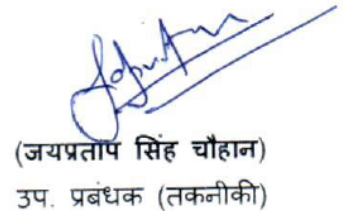 (जयप्रताप सिंह चौहान)
उप. प्रबंधक (तकनीकी)